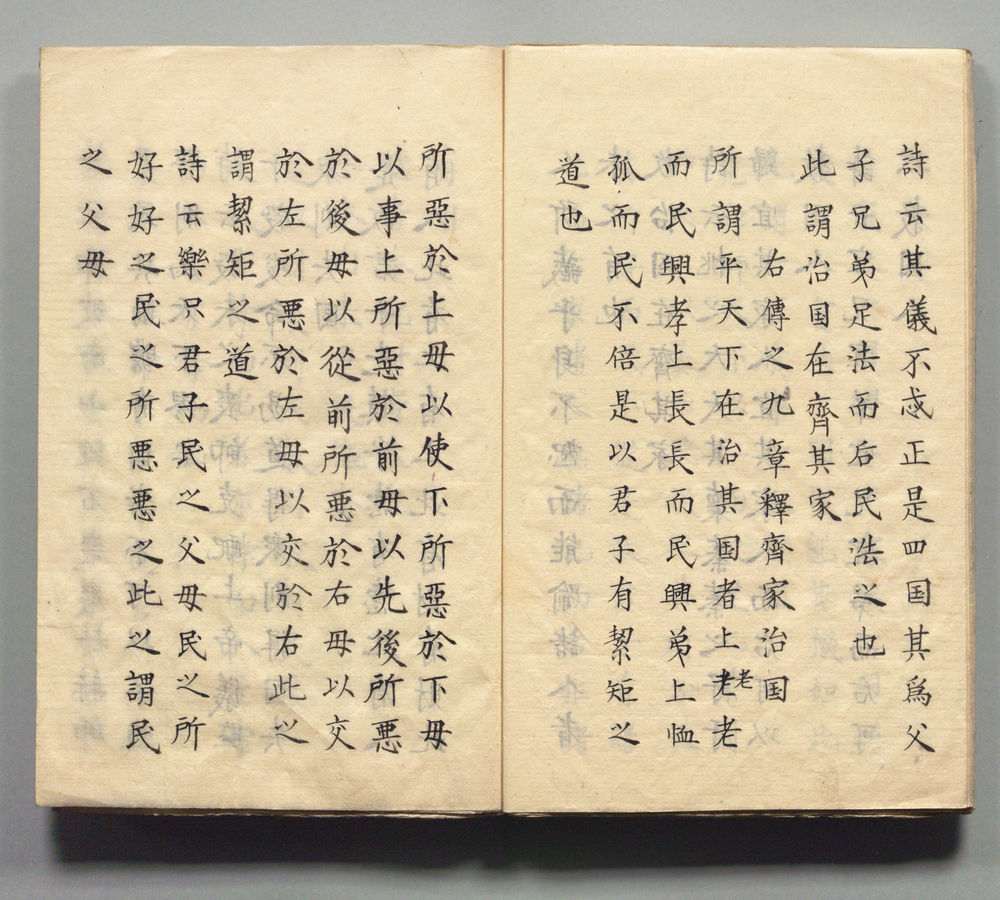 詩云其儀不忒正是四国其爲父
子兄弟足法而后民法之也
此謂治国在齊其家
右傳之九章釋齊家治国
所謂平天下在治其国者上老老
而民興孝上長長而民興弟上恤
孤而民不倍是以君子有絜矩之
道也
所惡於上毋以使下所惡於下毋
以事上所惡於前毋以先後所悪
於後毋以從前所悪於右毋以交
於左所悪於左毋以交於右此之
謂絜矩之道
詩云樂只君子民之父母民之所
好好之民之所悪悪之此之謂民
之父母